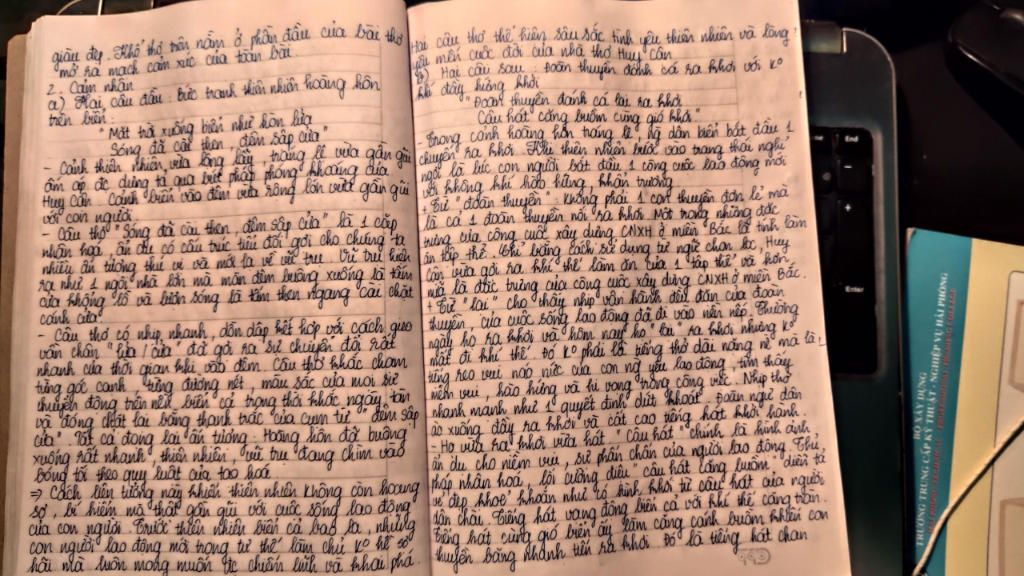 giàu đẹp. Khổ thơ trên nằm ở phần đầu của bài thơ
mở ra mạch cảm xúc của toàn bài
2. Cảm nhận
a) Hai câu đầu: Bức tranh thiên nhiên hoàng hôn
trên biển:
"Mặt trời xuống biển như hòn lửa
Sóng đã cài then, đêm sập cửa"
- Cảnh thiên nhiên vừa lộng lẫy, tráng lệ vừa gần gũi
ấm áp đc dựng tả qua bút pháp phóng khoáng của
Huy Cận. Cảnh biển vào đêm vừa rộng lớn vừa gần gũi
với con người.
- Câu thơ "Sóng đã cài then, đêm sập cửa" là 1 cặp
nhân hoá, ẩn dụ có cấu trúc tiểu đối gợi cho chúng ta
nhiều ấn tượng thú vị và mới lạ về vũ trụ. Vũ trụ hiện
ra như 1 ngôi nhà lớn mà màn đêm buông xuống là tấm
cửa khổng lồ và lượn sóng là then ngang cài chặt
cánh cửa.
- Câu thơ có nhịp nhanh, dồn dập kết hợp với cách gieo
vần chân "lửa / cửa" đã gợi ra sự chuyển đổi rất
nhanh của thời gian khi vào đêm. Câu thơ khắc chạm
từng góc cạnh, từng đường nét, màu sắc của mọi sự
chuyển động trên nền biển cả trong thời khắc ngày tàn
và đóng chặt lại bằng thanh trắc của cụm từ "đêm sập
cửa". Tất cả đọng lại ấn tượng: Hoàng hôn đã buông
xuống rất nhanh, thiên nhiên, vũ trụ đang chìm vào
bóng tối theo quy luật của tạo hoá
=> Cách liên tưởng này khiến thiên nhiên không còn hoang
sơ, bí hiểm mà thật gần gũi với cuộc sống lao động
của con người. Trước thiên nhiên biển cả bao la, nhưng
con người lao động mới trong tư thế làm chủ k° hề sợ
hãi mà luôn mong muốn đc chiếm lĩnh và khai phá.
Hai câu thơ thể hiện sâu sắc tình yêu thiên nhiên và lòng
yêu mến cuộc đời của nhà thơ Huy Cận
b) Hai câu sau: Đoàn thuyền đánh cá ra khơi với k°
khí đầy hứng khởi
"Đoàn thuyền đánh cá lại ra khơi
Câu hát căng buồm cùng gió khơi"
- Trong cảnh hoàng hôn tráng lệ, ngư dân biển bắt đầu 1
chuyến ra khơi. Khi thiên nhiên bước vào trạng thái nghỉ
ngơi là lúc con người bắt đầu 1 công cuộc lao động mới
với không khí hào hứng, khẩn trương
- Từ "đoàn thuyền": không phải 1 con thuyền đơn lẻ mà
là cả 1 đoàn thuyền nối ra khơi. Một trong những đặc
trưng của công cuộc xây dựng CNXH ở miền Bắc là tính làm
ăn tập thể. Chỉ bằng cách sử dụng từ ngữ chọn lọc, Huy
Cận vừa gợi ra khí thế làm ăn của 1 tập thể và hơn
mà là đặc trưng của công cuộc xây dựng CNXH ở miền Bắc.
+ Từ "lại" cho thấy nhịp vận hành đều đặn của đoàn
thuyền, của cuộc sống lao động đã đi vào nền nếp. Thường
ngày họ ra khơi và hôm nay họ "lại" ra khơi nhưng k°
mất đi khí thế. Đó k° phải là tiếng thở dài nặng nề mà là
tiếng reo vui náo nức của con ng yêu lao động, tìm thấy
niềm vui, hào hứng và hi vọng trong công việc. Nhịp thơ
nhanh mạnh như 1 quyết định dứt khoát. Đoàn ngư dân
ào xuống đẩy ra khơi và cất cao tiếng hát khởi hành.
- Họ vừa ra khơi vừa hát. "Câu hát" chính là hình ảnh
ẩn dụ cho niềm vui, sự phấn chấn của người lao động. Thủ
pháp nhân hoá, lối cường điệu "câu hát căng buồm" diễn tả
vẻ đẹp khoẻ khoắn như có hình khối từ câu hát của người
dân chài. Tiếng hát vang động biển cả với khí thế căng tràn.
Tiếng hát cùng gió biển ấy làm căng cánh buồm khiến con
thuyền băng nhanh tiến ra khơi. Đó là tiếng hát chan
BỘ XÂY DỰNG
TRƯỜNG TRUNG CẤP KỸ THUẬT - NGHIỆP VỤ HẢI PHÒNG
End
Enter